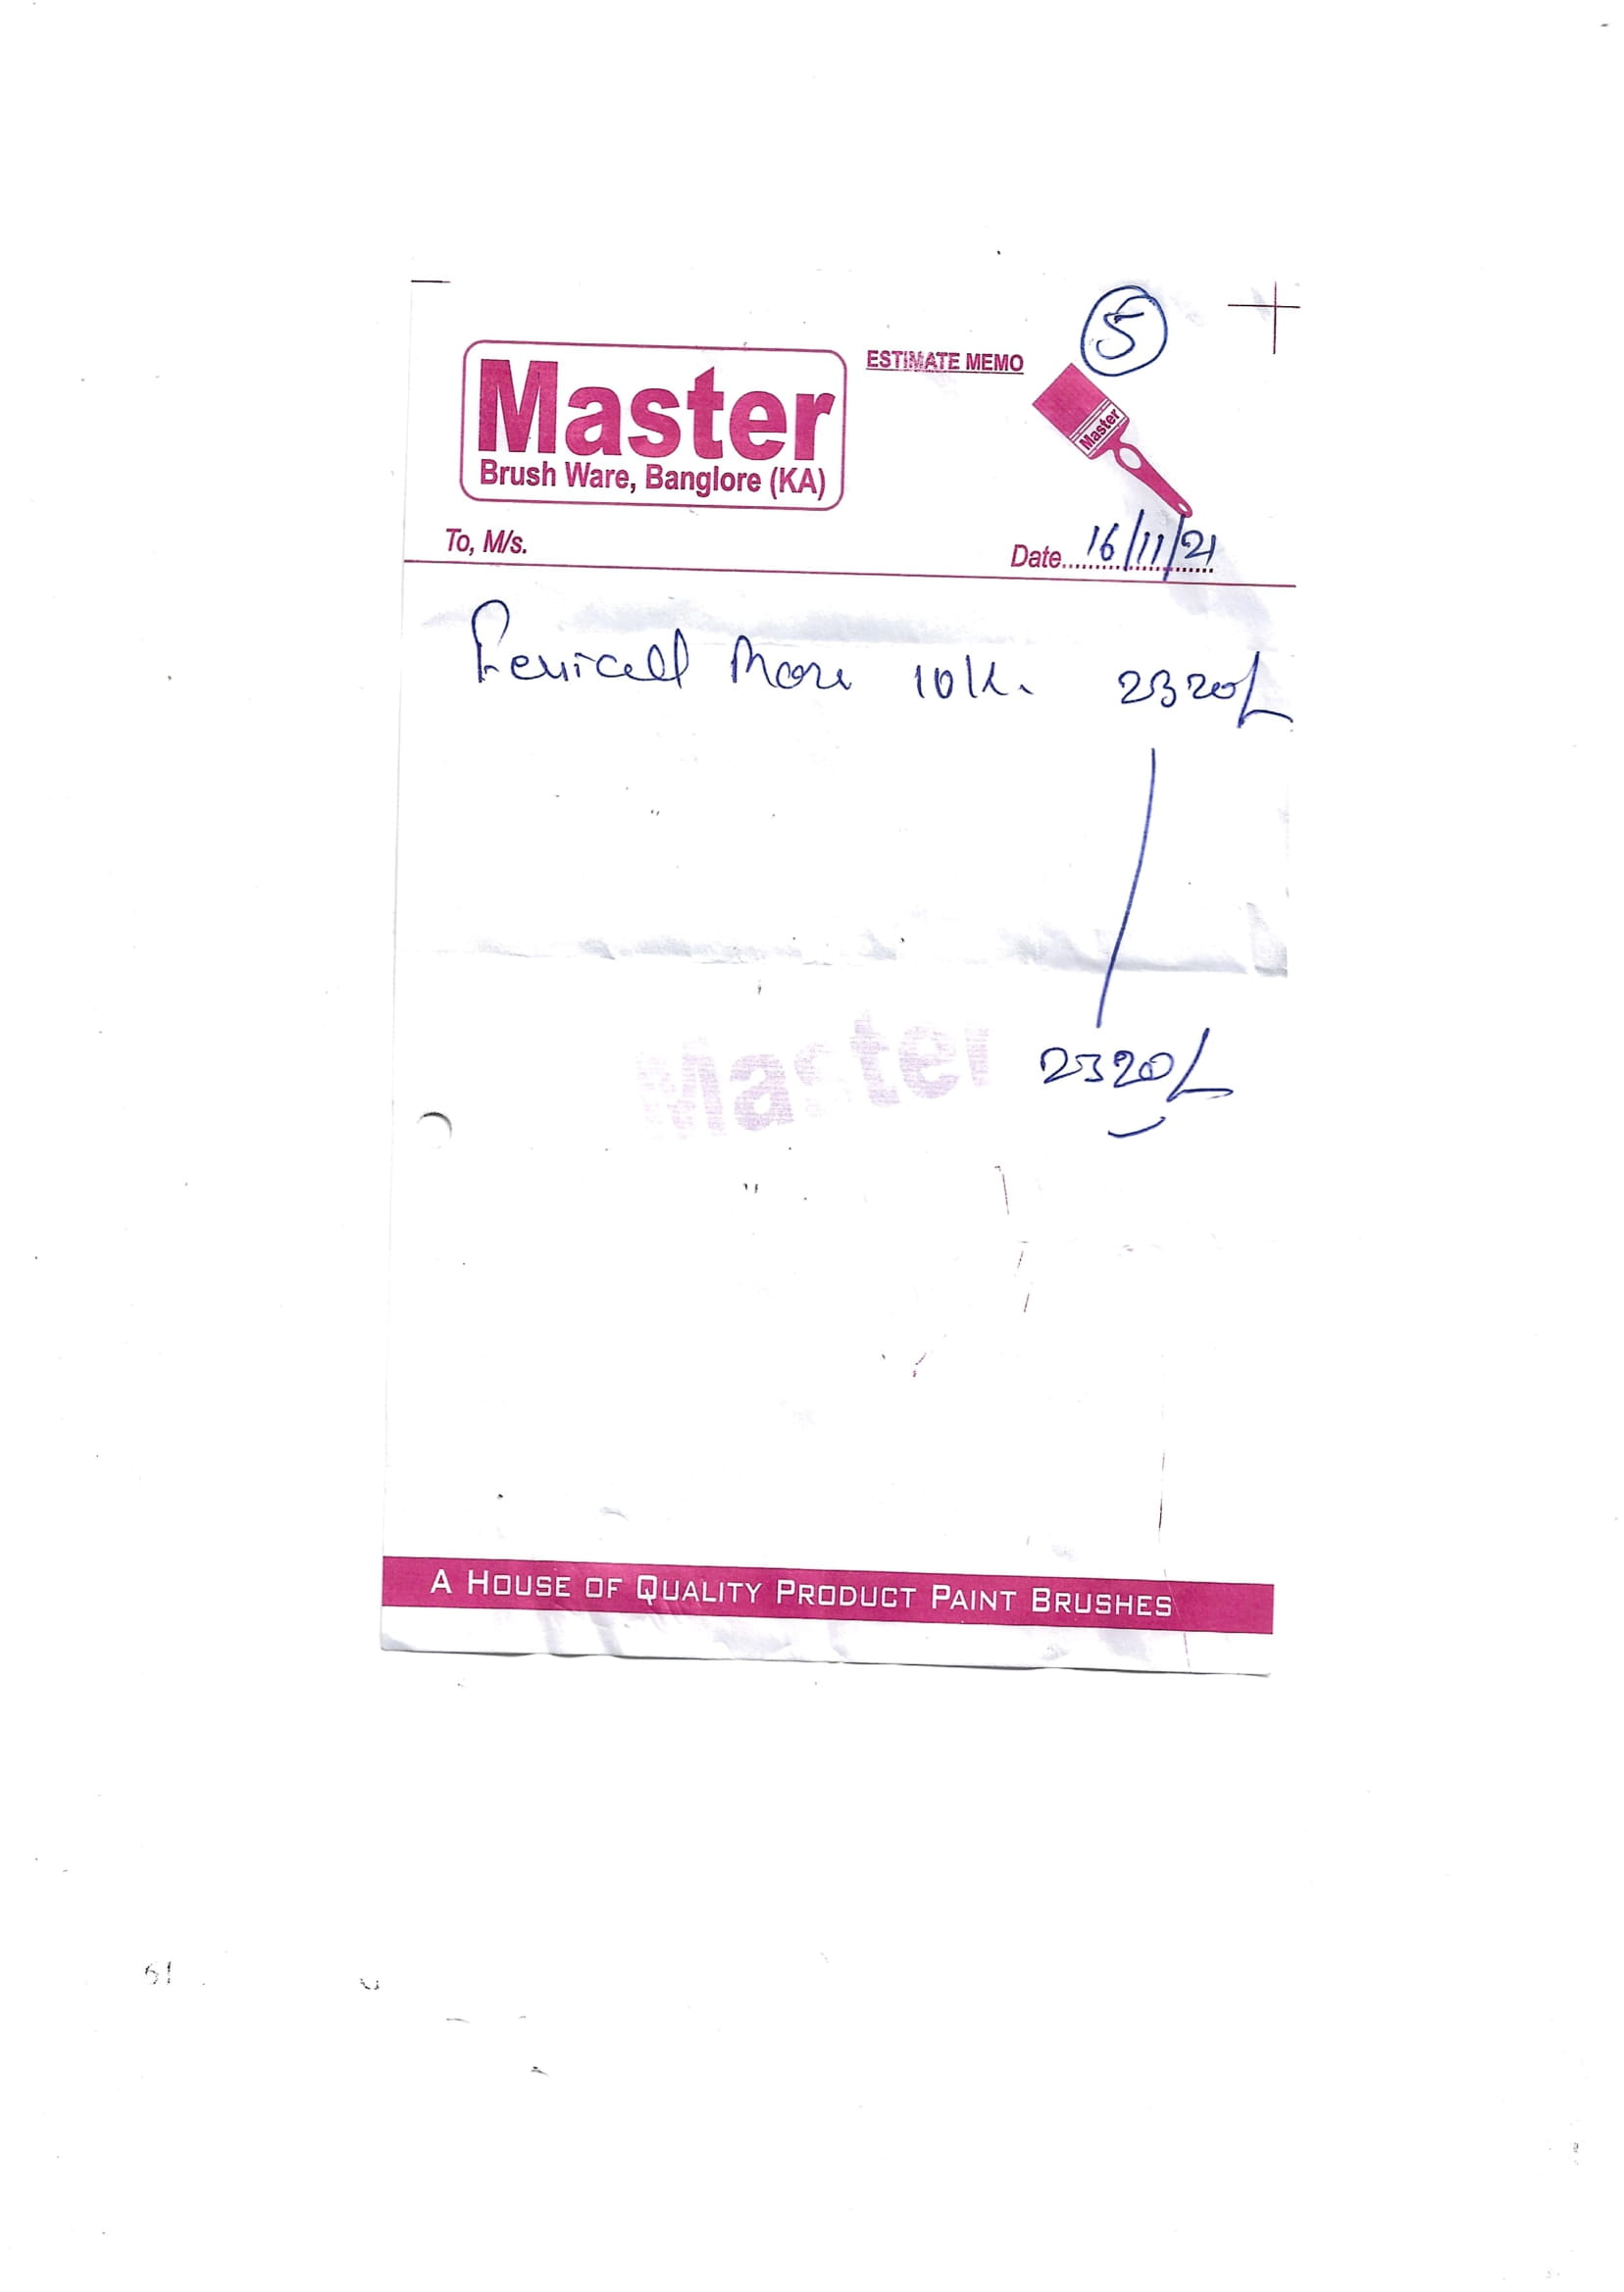 5
ESTIMATE MEMO
Master
Brush Ware, Banglore (KA)
Master
To, M/s.
Date 16/11/21
10K. 2320/-
2320/-
Master
A HOUSE OF QUALITY PRODUCT PAINT BRUSHES